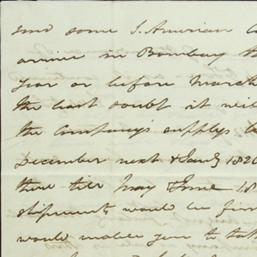 and some S. American
arrive in Bombay
year or before March
the least doubt it will
the Company's supplys
December next & Jany 182
there till May & June 18
shipments would be
would enable you to